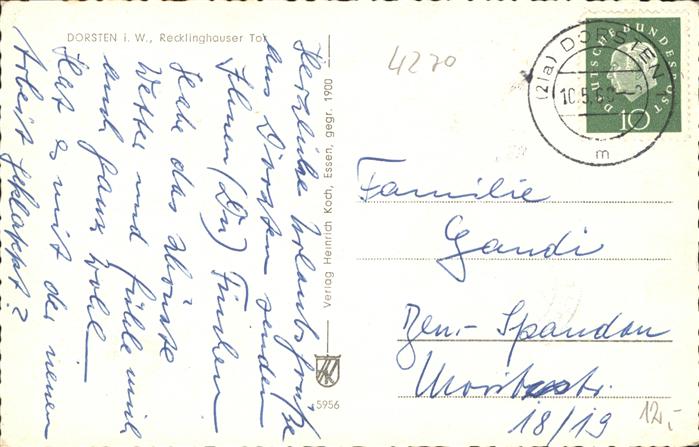 DORSTEN i. W., Recklinghauser Tor
Herzliche Urlaubsgrüße
aus Dorsten senden
Ihnen (Du)
Habe das
Wetter und fühle mich
auch ganz wohl.
Hat es mit der neuen
Arbeit geklappt?
Verlag Heinrich Koch, Essen, gegr. 1900
5956
4270
(21a) DORSTEN
10.5.60
m
DEUTSCHE BUNDESPOST
10
Familie
Gandi
Bln.- Spandau
18/19
12,-